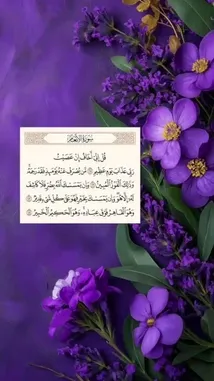 سورة الأنعام
قُلْ إِنِّي أَخَافُ إِنْ عَصَيْتُ
رَبِّي عَذَابَ يَوْمٍ عَظِيمٍ ۝ مَّن يُصْرَفْ عَنْهُ يَوْمَئِذٍ فَقَدْ رَحِمَهُ
وَذَٰلِكَ ٱلْفَوْزُ ٱلْمُبِينُ ۝ وَإِن يَمْسَسْكَ ٱللَّهُ بِضُرٍّ فَلَا كَاشِفَ
لَهُۥٓ إِلَّا هُوَ وَإِن يَمْسَسْكَ بِخَيْرٍ فَهُوَ عَلَىٰ كُلِّ شَيْءٍ قَدِيرٌ ۝
وَهُوَ ٱلْقَاهِرُ فَوْقَ عِبَادِهِۦ وَهُوَ ٱلْحَكِيمُ ٱلْخَبِيرُ ۝